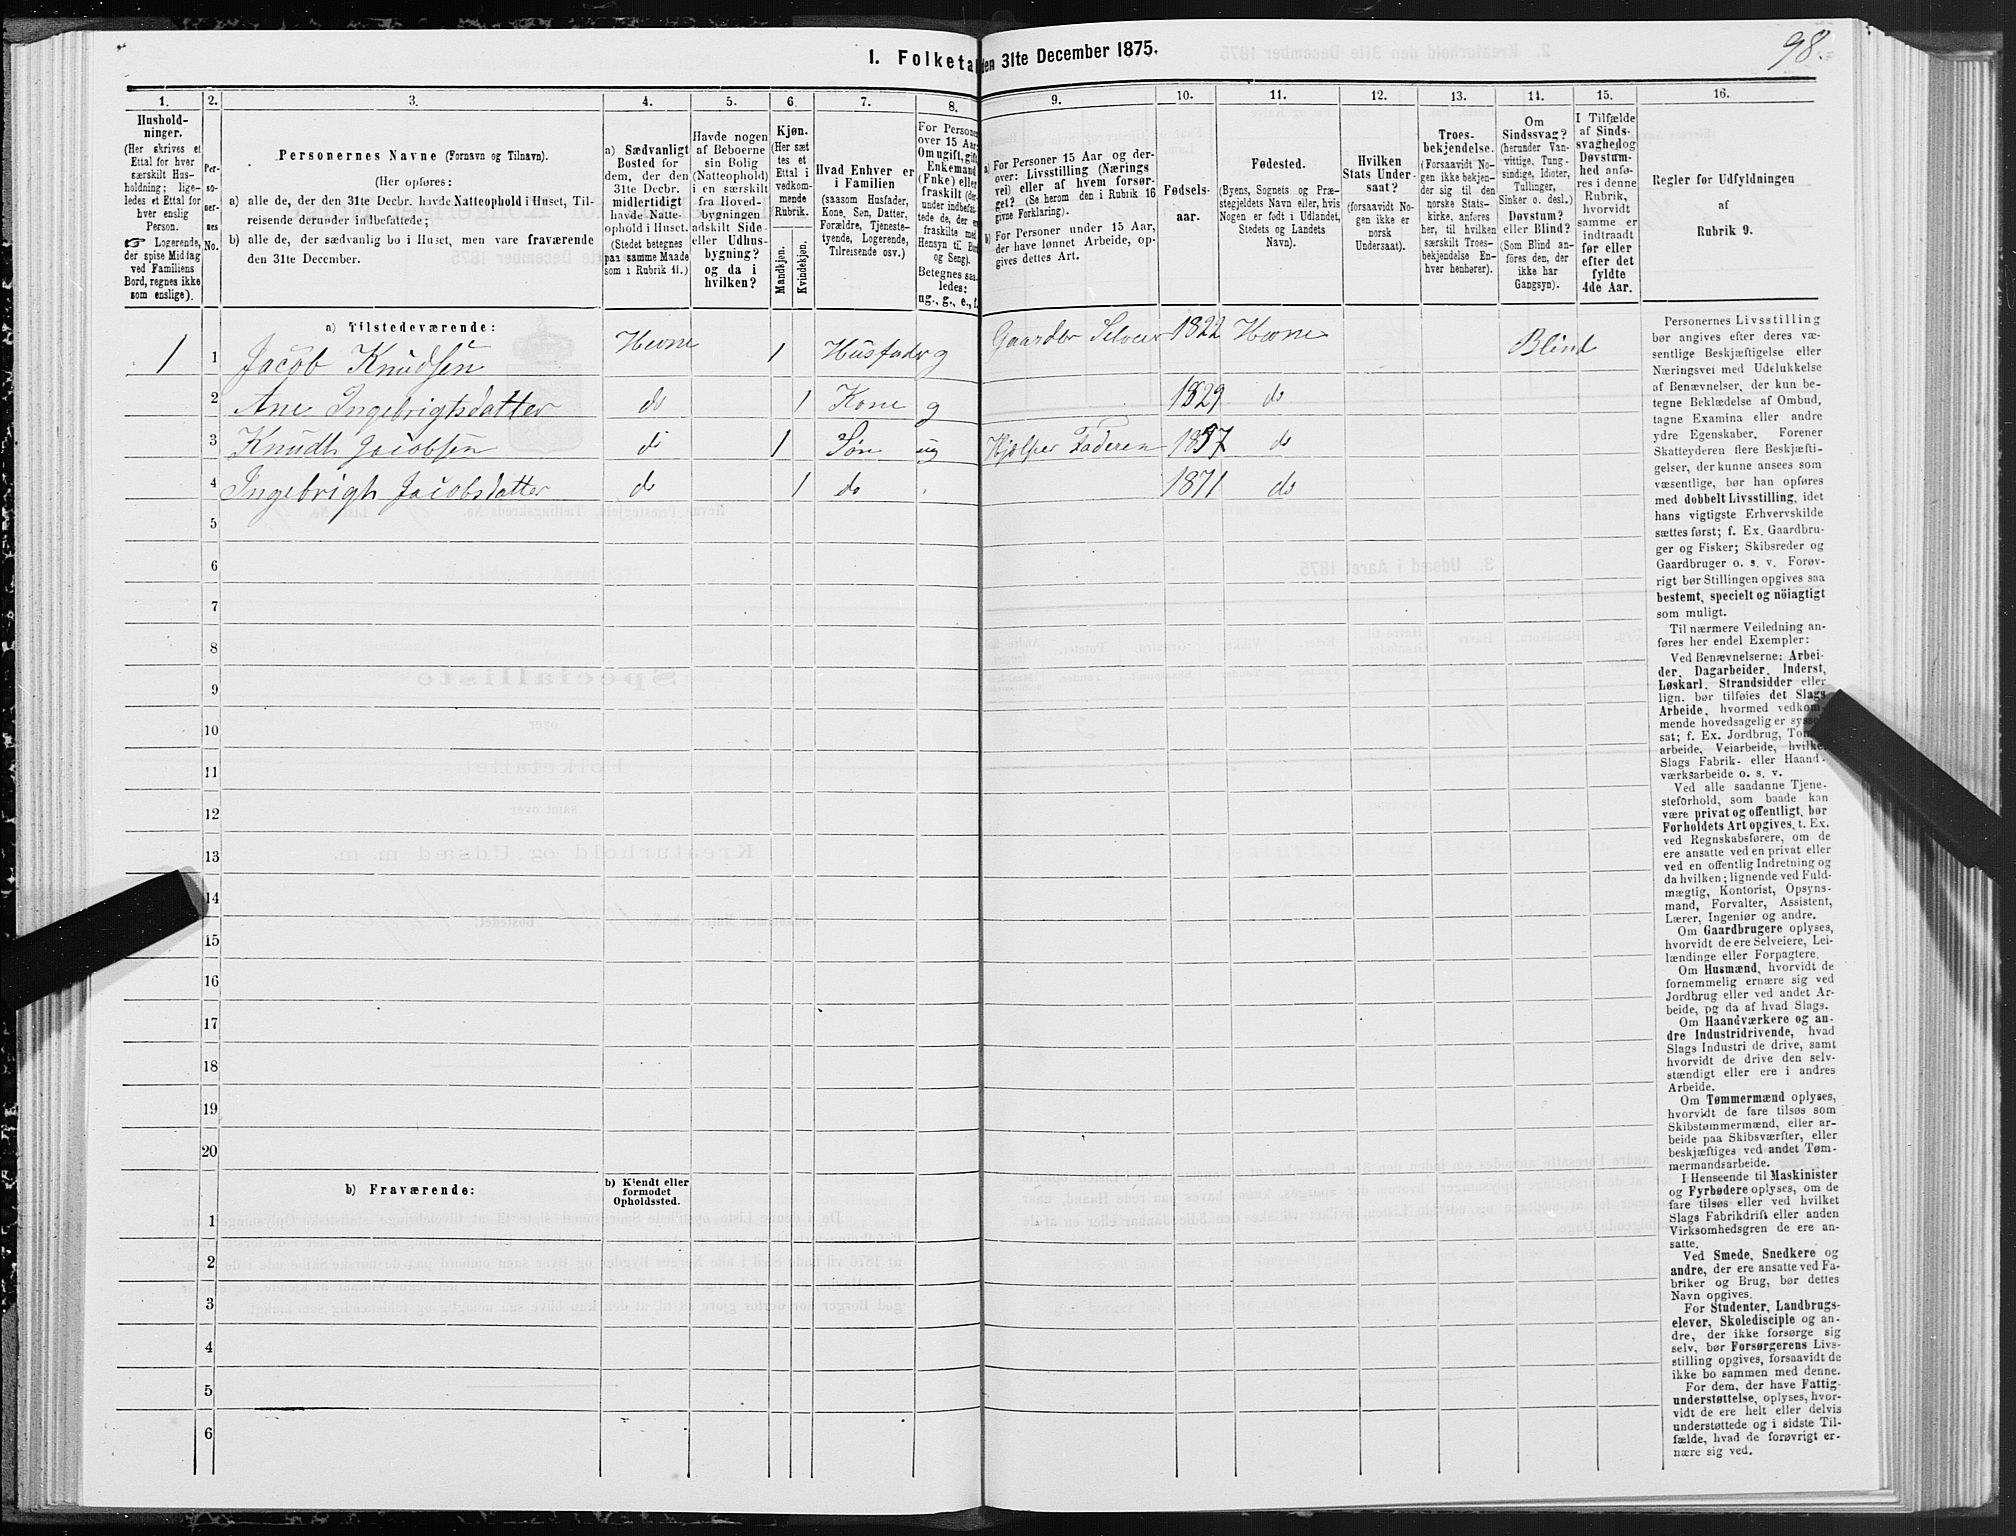 98.
1. Folketa den 31te December 1875.
1. 2. 3. 4. 5. 6. 7. 8. 9. 10. 11. 12. 13. 14. 15. 16.
Hushold-
ninger.
(Her skrives et
Ettal for hver
særskilt Hus-
holdning; lige-
ledes et Ettal for
hver enslig
Person.
☞ Logerende,
der spise Middag
ved Familiens
Bord, regnes ikke
som enslige).
Per-
so-
ner-
nes
No.
Personernes Navne (Fornavn og Tilnavn).
(Her opføres:
a) alle de, der den 31te Decbr. havde Natteophold i Huset, Til-
reisende derunder indbefattede;
b) alle de, der sædvanlig bo i Huset, men vare fraværende
den 31te December.
a) Sædvanligt
Bosted for
dem, der den
31te Decbr.
midlertidigt
havde Natte-
ophold i Huset.
(Stedet betegnes
paa samme Maade
som i Rubrik 11.)
Havde nogen
af Beboerne
sin Bolig
(Natteophold)
i en særskilt
fra Hoved-
bygningen
adskilt Side-
eller Udhus-
bygning?
og da i
hvilken?
Kjøn.
(Her sæt
tes et
Ettal i
vedkom-
mende
Rubrik.
Mandkjøn.
Kvindekjøn.
Hvad Enhver er
i Familien
(saasom Husfader,
Kone, Søn, Datter,
Forældre, Tjeneste-
tyende, Logerende,
Tilreisende osv.)
For Personer
over 15 Aar:
Om ugift, gift,
Enkemand
(Enke) eller
fraskilt (der-
under indbefat-
tede de, der er
fraskilte med
Hensyn til Bord
og Seng).
Betegnes saa-
ledes:
ug., g., e., f.
a) For Personer 15 Aar og der-
over: Livsstilling (Nærings
vei) eller af hvem forsør-
get? (Se herom den i Rubrik 16
givne Forklaring).
b) For Personer under 15 Aar,
der have lønnet Arbeide, op-
gives dettes Art.
Fødsels-
aar.
Fødested.
(Byens, Sognets og Præ-
stegjeldets Navn eller, hvis
Nogen er født i Udlandet,
Stedets og Landets
Navn).
Hvilken
Stats Under-
saat?
(forsaavidt No-
gen ikke er
norsk
Undersaat).
Troes-
bekjendelse.
(Forsaavidt No-
gen ikke bekjen-
der sig til den
norske Stats-
kirke, anføres
her, til hvilken
særskilt Troes-
bekjendelse En-
hver henhører).
Om
Sindssvag?
(herunder Van-
vittige, Tung-
sindige, Idioter,
Tullinger,
Sinker o. desl.)
Døvstum?
eller Blind?
(Som Blind an-
føres den, der
ikke har
Gangsyn).
I Tilfælde
af Sinds-
svaghed og
Døvstum-
hed anfø-
res i denne
Rubrik,
hvorvidt
samme er
indtraadt
før eller
efter det
fyldte
4de Aar.
Regler for Udfyldningen
af
Rubrik 9.
a) Tilstedeværende:
1 1 Jacob Knudsen Hevne 1 Husfader g Gaardbr Selveier 1822 Hevne Blind
2 Ane Ingebrigtsdatter do 1 Kone g 1829 do
3 Knudt Jacobsen do 1 Søn ug Hjælper Faderen 1857 do
4 Ingebrigh Jacobsdatter do 1 do 1871 do
5
6
7
8
9
10
11
12
13
14
15
16
17
18
19
20
b) Fraværende:
b) Kjendt eller
formodet
Opholdssted.
1
2
3
4
5
6
Personernes Livsstilling
bør angives efter deres væ-
sentlige Beskjæftigelse eller
Næringsvei med Udelukkelse
af Benævnelser, der kun be-
tegne Beklædelse af Ombud,
tagne Examina eller andre
ydre Egenskaber. Forener
Skatteyderen flere Beskjæfti-
gelser, der kunne ansees som
væsentlige, bør han opføres
med dobbelt Livsstilling, idet
hans vigtigste Erhvervskilde
sættes først; f. Ex. Gaardbru-
ger og Fisker; Skibsreder og
Gaardbruger o. s. v. Forøv-
rigt bør Stillingen opgives saa
bestemt, specielt og nöiagtigt
som muligt.
Til nærmere Veiledning an-
føres her endel Exempler:
Ved Benævnelserne: Arbei-
der, Dagarbeider, Inderst,
Løskarl, Strandsidder eller
lign. bør tilføies det Slags
Arbeide, hvormed vedkom-
mende hovedsagelig er syssel-
sat; f. Ex. Jordbrug, Tom
arbeide, Veiarbeide, hvilket
Slags Fabrik- eller Haand-
værksarbeide o. s. v.
Ved alle saadanne Tjene-
steforhold, som baade kan
være privat og offentligt, bør
Forholdets Art opgives, t. Ex.
ved Regnskabsførere, om de
ere ansatte ved en privat eller
ved en offentlig Indretning og
da hvilken; lignende ved Fuld-
mægtig, Kontorist, Opsyns-
mand, Forvalter, Assistent,
Lærer, Ingeniør og andre.
Om Gaardbrugere oplyses,
hvorvidt de ere Selveiere, Lei-
lændinge eller Forpagtere.
Om Husmænd, hvorvidt de
fornemmelig ernære sig ved
Jordbrug eller ved andet Ar-
beide, og da af hvad Slags.
Om Haandværkere og an-
dre Industridrivende, hvad
Slags Industri de drive, samt
hvorvidt de drive den selv-
stændigt eller ere i andres
Arbeide.
Om Tømmermænd oplyses,
hvorvidt de fare tilsøs som
Skibstømmermænd, eller ar-
beide paa Skibsværfter, eller
beskjæftiges ved andet Tøm-
mermandsarbeide.
I Henseende til Maskinister
og Fyrbødere oplyses, om de
fare tilsøs eller ved hvilket
Slags Fabrikdrift eller anden
Virksomhedsgren de ere an-
satte.
Ved Smede, Snedkere og
andre, der ere ansatte ved Fa-
briker og Brug, bør dettes
Navn opgives.
For Studenter, Landbrugs-
elever, Skoledisciple og an-
dre, der ikke forsørge sig
selv, bør Forsørgerens Livs-
stilling opgives, forsaavidt de
ikke bo sammen med denne.
For dem, der have Fattig-
understøttelse, oplyses, hvor-
vidt de ere helt eller delvis
understøttede og i sidste Til-
fælde, hvad de forøvrigt er-
nære sig ved.